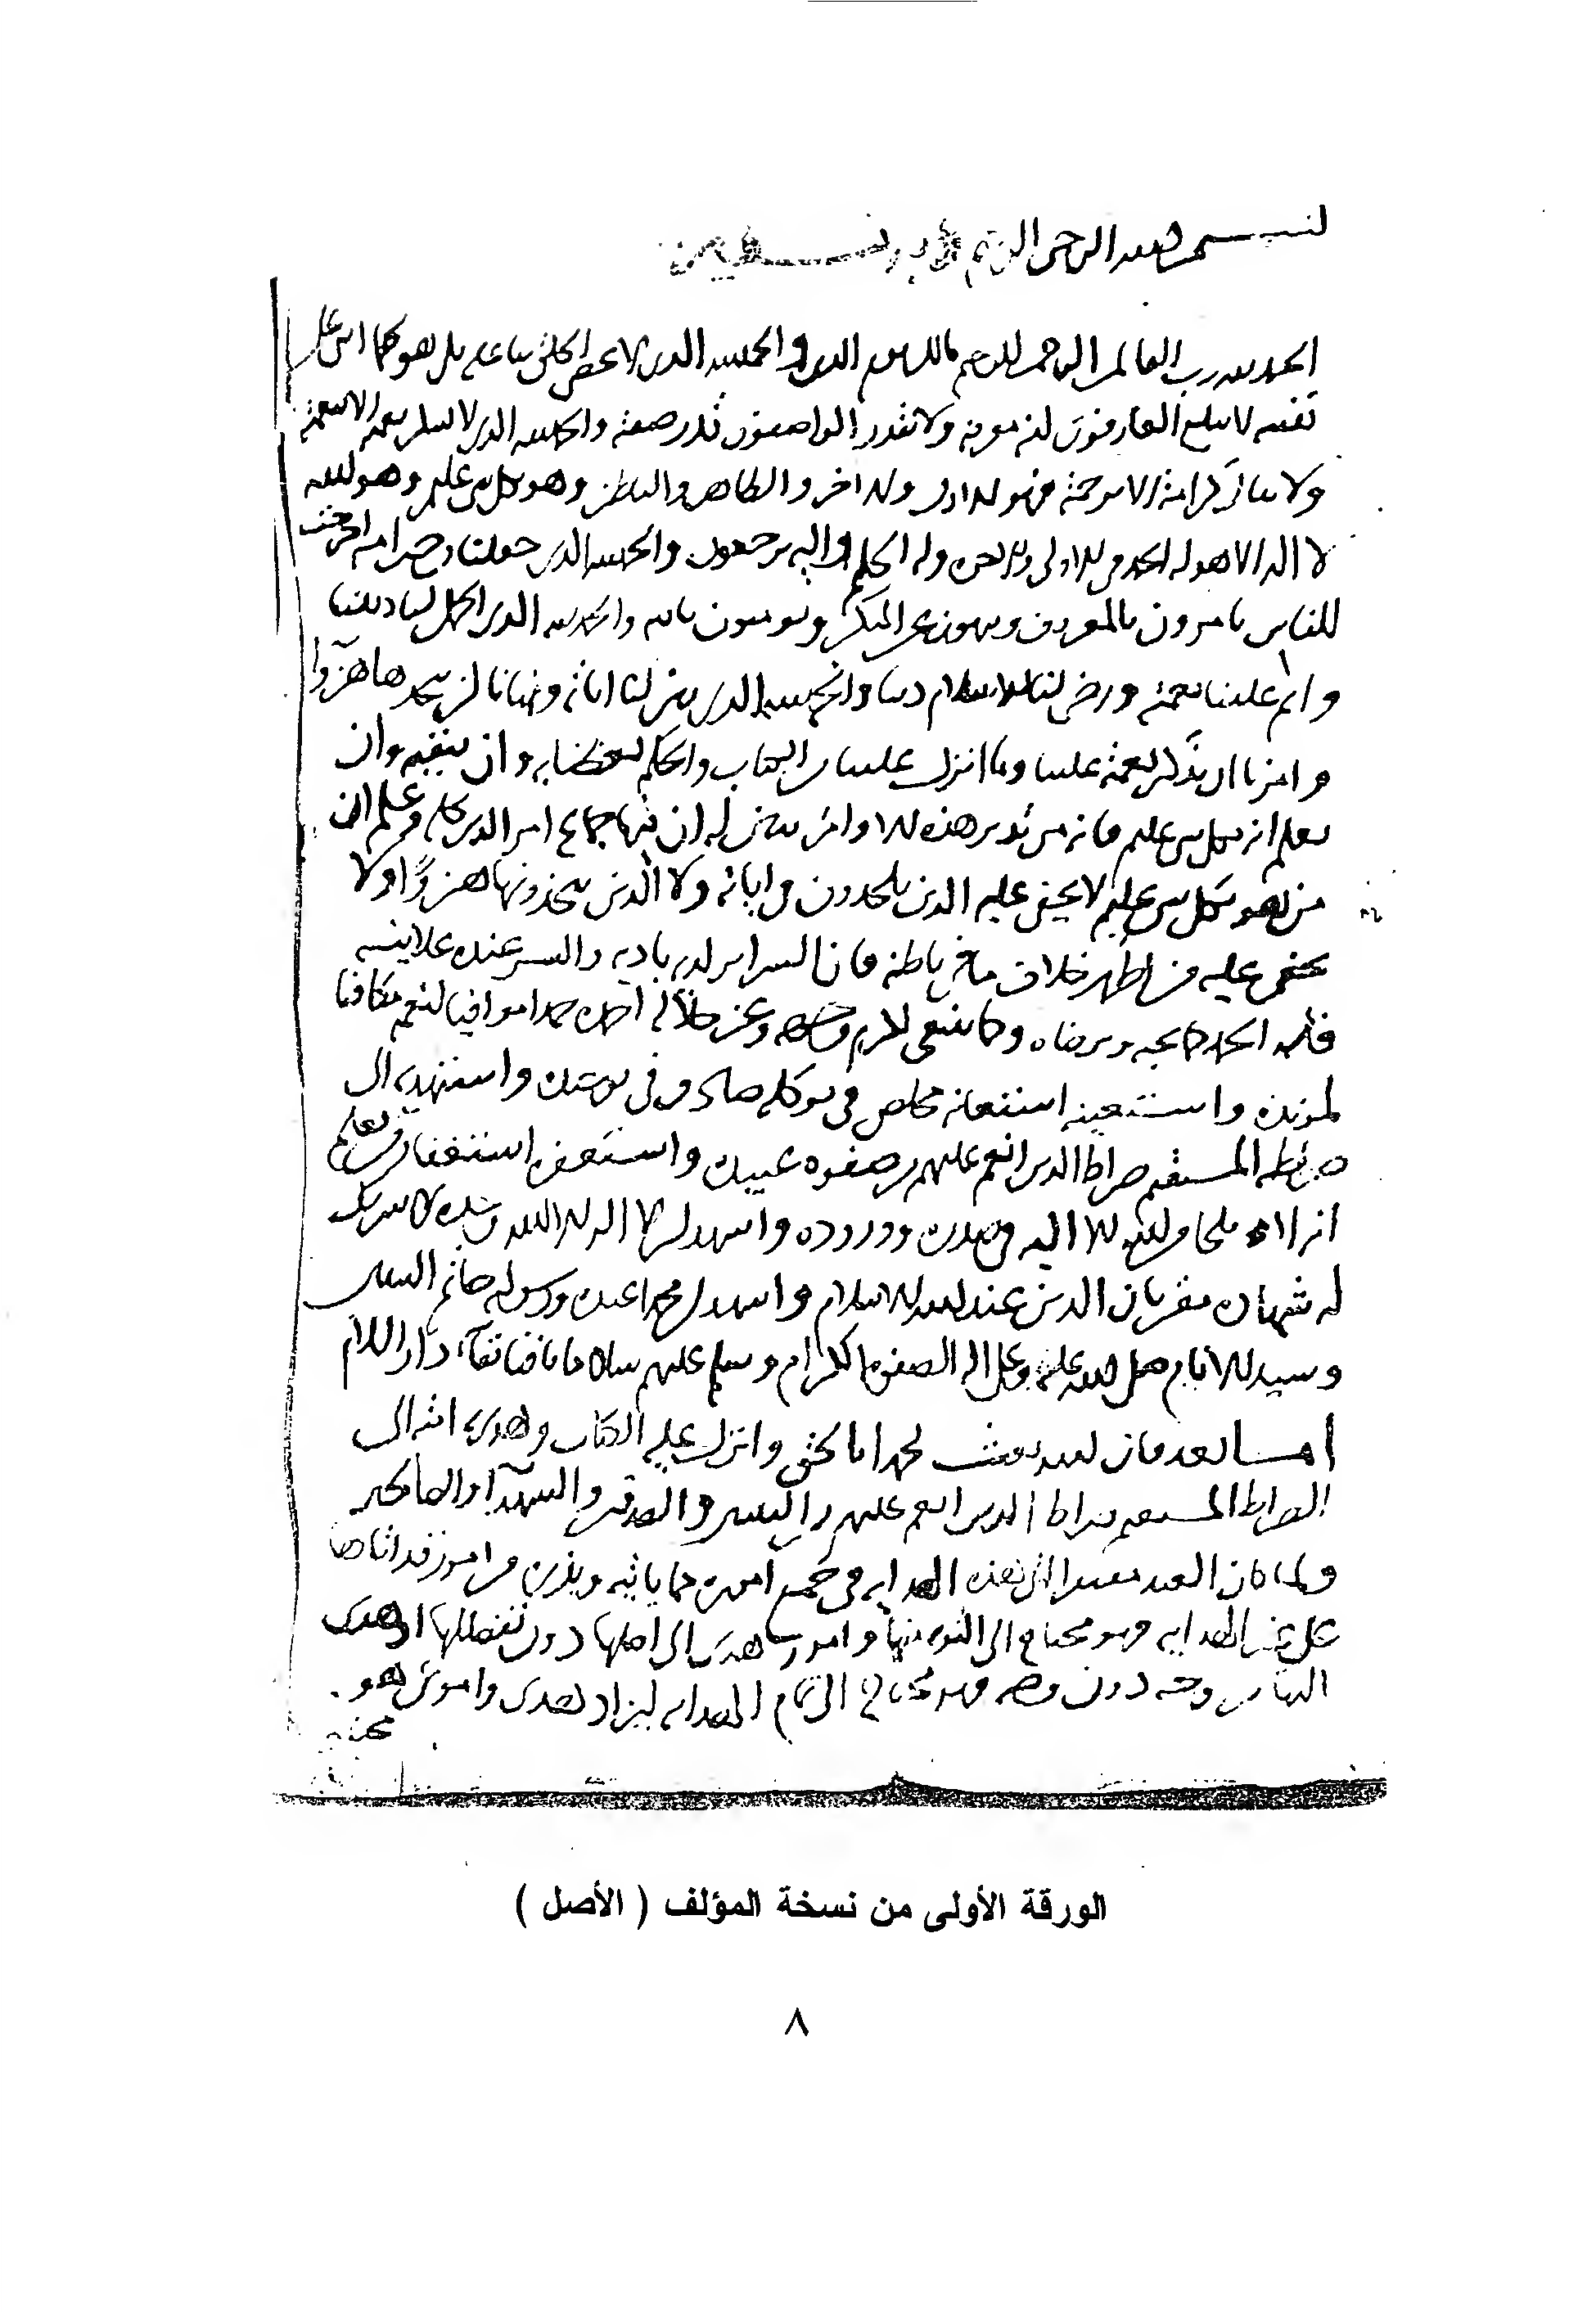 بسم الله الرحمن الرحيم
الحمد لله رب العالمين الرحمن الرحيم مالك يوم الدين والحمد لله الذي لا يحصي الخلق ثناء عليه بل هو كما اثنى على
نفسه لا يبلغ العارفون كنه معرفته ولا يقدر الواصفون قدر صفته والحمد لله الذي لا تشكر نعمته الا بنعمته
ولا تنال كرامته الا برحمته فهو الاول والاخر والظاهر والباطن وهو بكل شي عليم وهو الله
لا اله الا هو له الحمد في الاولى والاخرة وله الحكم واليه ترجعون والحمد لله الذي جعلنا خير امة اخرجت
للناس يامرون بالمعروف وينهون عن المنكر ويومنون بالله والحمد لله الذي اكمل لنا ديننا
واتم علينا نعمته ورضي لنا الاسلام دينا والحمد لله الذي بين لنا اياته ونهانا ان نتخذها هزوا
وامرنا ان نذكر نعمته علينا وما انزل علينا من الكتاب والحكمة يعظنا به وان نتقيه وان
نعلم انه بكل شي عليم فانه من تدبر هذه الاوامر تبين له ان فيها جماع امر الدين كله وعلم ان
من هو بكل شي عليم لا يخفى عليه الذين يلحدون في اياته ولا الذين يتخذونها هزوا ولا
يخفى عليه من اظهر خلاف ما في باطنه فان السرائر لديه بادية والسر عنده علانية
فله الحمد كما يحبه ويرضاه وكما ينبغي لكرم وجهه وعز جلاله احمده حمدا موافيا لنعمه مكافئا
لمزيده واستعينه استعانة مخلص في توكله صادق في توحيده واستهديه الى
صراطه المستقيم صراط الذين انعم عليهم من صفوة عبيده واستغفره استغفار من يعلم
ان لا ملجا من الله الا اليه في صدره ووروده واشهد ان لا اله الا الله وحده لا شريك
له شهادة مقر بان الدين عند الله الاسلام واشهد ان محمدا عبده ورسوله خاتم النبيين
وسيد الانام صلى الله عليه وعلى اله الصفوة الكرام وسلم عليهم سلاما باقيا بقاء دار السلام
اما بعد فان الله بعث محمدا بالحق وانزل عليه الكتاب وهدى به امته الى
الصراط المستقيم صراط الذين انعم عليهم من النبيين والصديقين والشهداء والصالحين
ولما كان العبد مفتقرا الى هذه الهداية في جميع اموره مما ياتيه ويذره من امور قد اتاها
على غير الهداية فهو محتاج الى التوبة منها وامور هدي الى اصلها دون تفصيلها او هدي
اليها من وجه دون وجه فهو محتاج الى تمام الهداية ليزداد هدى وامور هو
محتاج
الورقة الأولى من نسخة المؤلف ( الأصل )
٨